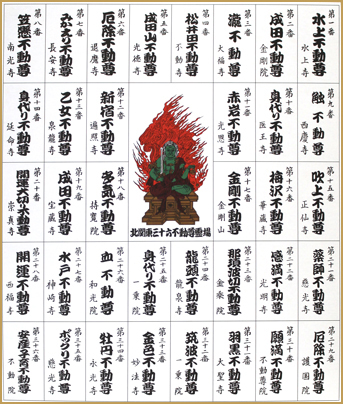 第一番
水上不動尊
水上寺
第二番
成田不動尊
金剛院
第三番
瀧不動尊
大福寺
第四番
松井田不動尊
不動寺
第五番
成田山不動尊
光徳寺
第六番
厄除不動尊
退魔寺
第七番
かえり不動尊
長安寺
第八番
笠懸不動尊
南光寺
第九番
触不動尊
西慶寺
第十番
身代り不動尊
医王寺
第十一番
赤岩不動尊
光恩寺
第十二番
新宿不動尊
遍照寺
第十三番
乙女不動尊
泉龍寺
第十四番
身代り不動尊
延命寺
第十五番
吹上不動尊
正仙寺
第十六番
梅沢不動尊
華蔵寺
第十七番
金剛不動尊
金剛山
北関東三十六不動尊霊場
第十八番
多気不動尊
持寳院
第十九番
成田不動尊
宝蔵寺
第二十番
開運犬切不動尊
崇真寺
第二十一番
薬師不動尊
慈光寺
第二十二番
感満不動尊
光明寺
第二十三番
那須波切不動尊
金乗院
第二十四番
龍頭不動尊
龍泉寺
第二十五番
身代り不動尊
一乗院
第二十六番
血不動尊
和光院
第二十七番
水戸不動尊
神崎寺
第二十八番
開運不動尊
西福寺
第二十九番
厄除不動尊
護國院
第三十番
願満不動尊
不動尊院
第三十一番
羽黒不動尊
大聖寺
第三十二番
筑波不動尊
一乗院
第三十三番
金色不動尊
妙法寺
第三十四番
牡円不動尊
永光寺
第三十五番
ポックリ不動尊
慈光寺
第三十六番
安産子育不動尊
不動院